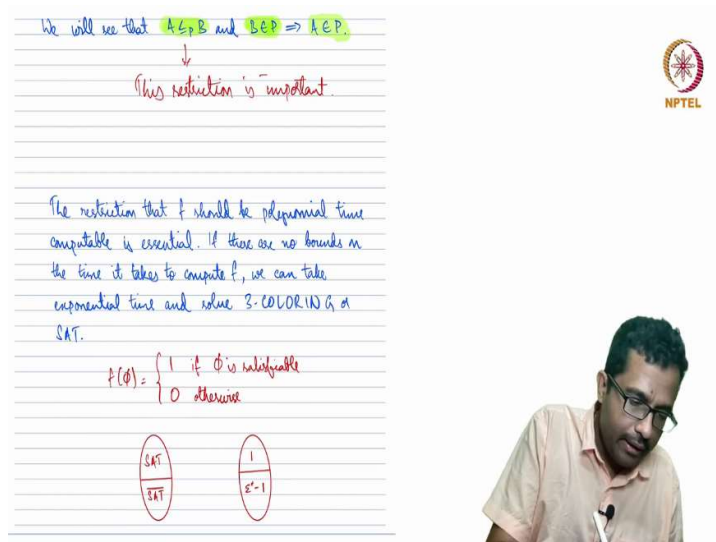 We will see that A ≤p B and B∈P ⇒ A∈P.
↓
This restriction is important.
NPTEL
The restriction that f should be polynomial time
computable is essential. If there are no bounds on
the time it takes to compute f, we can take
exponential time and solve 3-COLORING or
SAT.
f(ϕ) = { 1 if ϕ is satisfiable
0 otherwise
SAT 1
S̅A̅T̅ Σ*-1